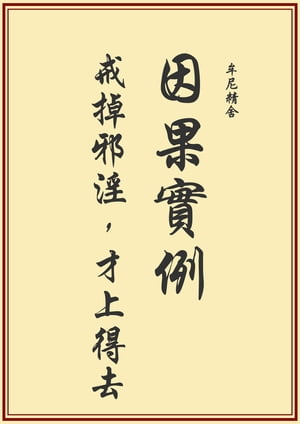 牟尼精舍
因果實例
戒掉邪淫，才上得去